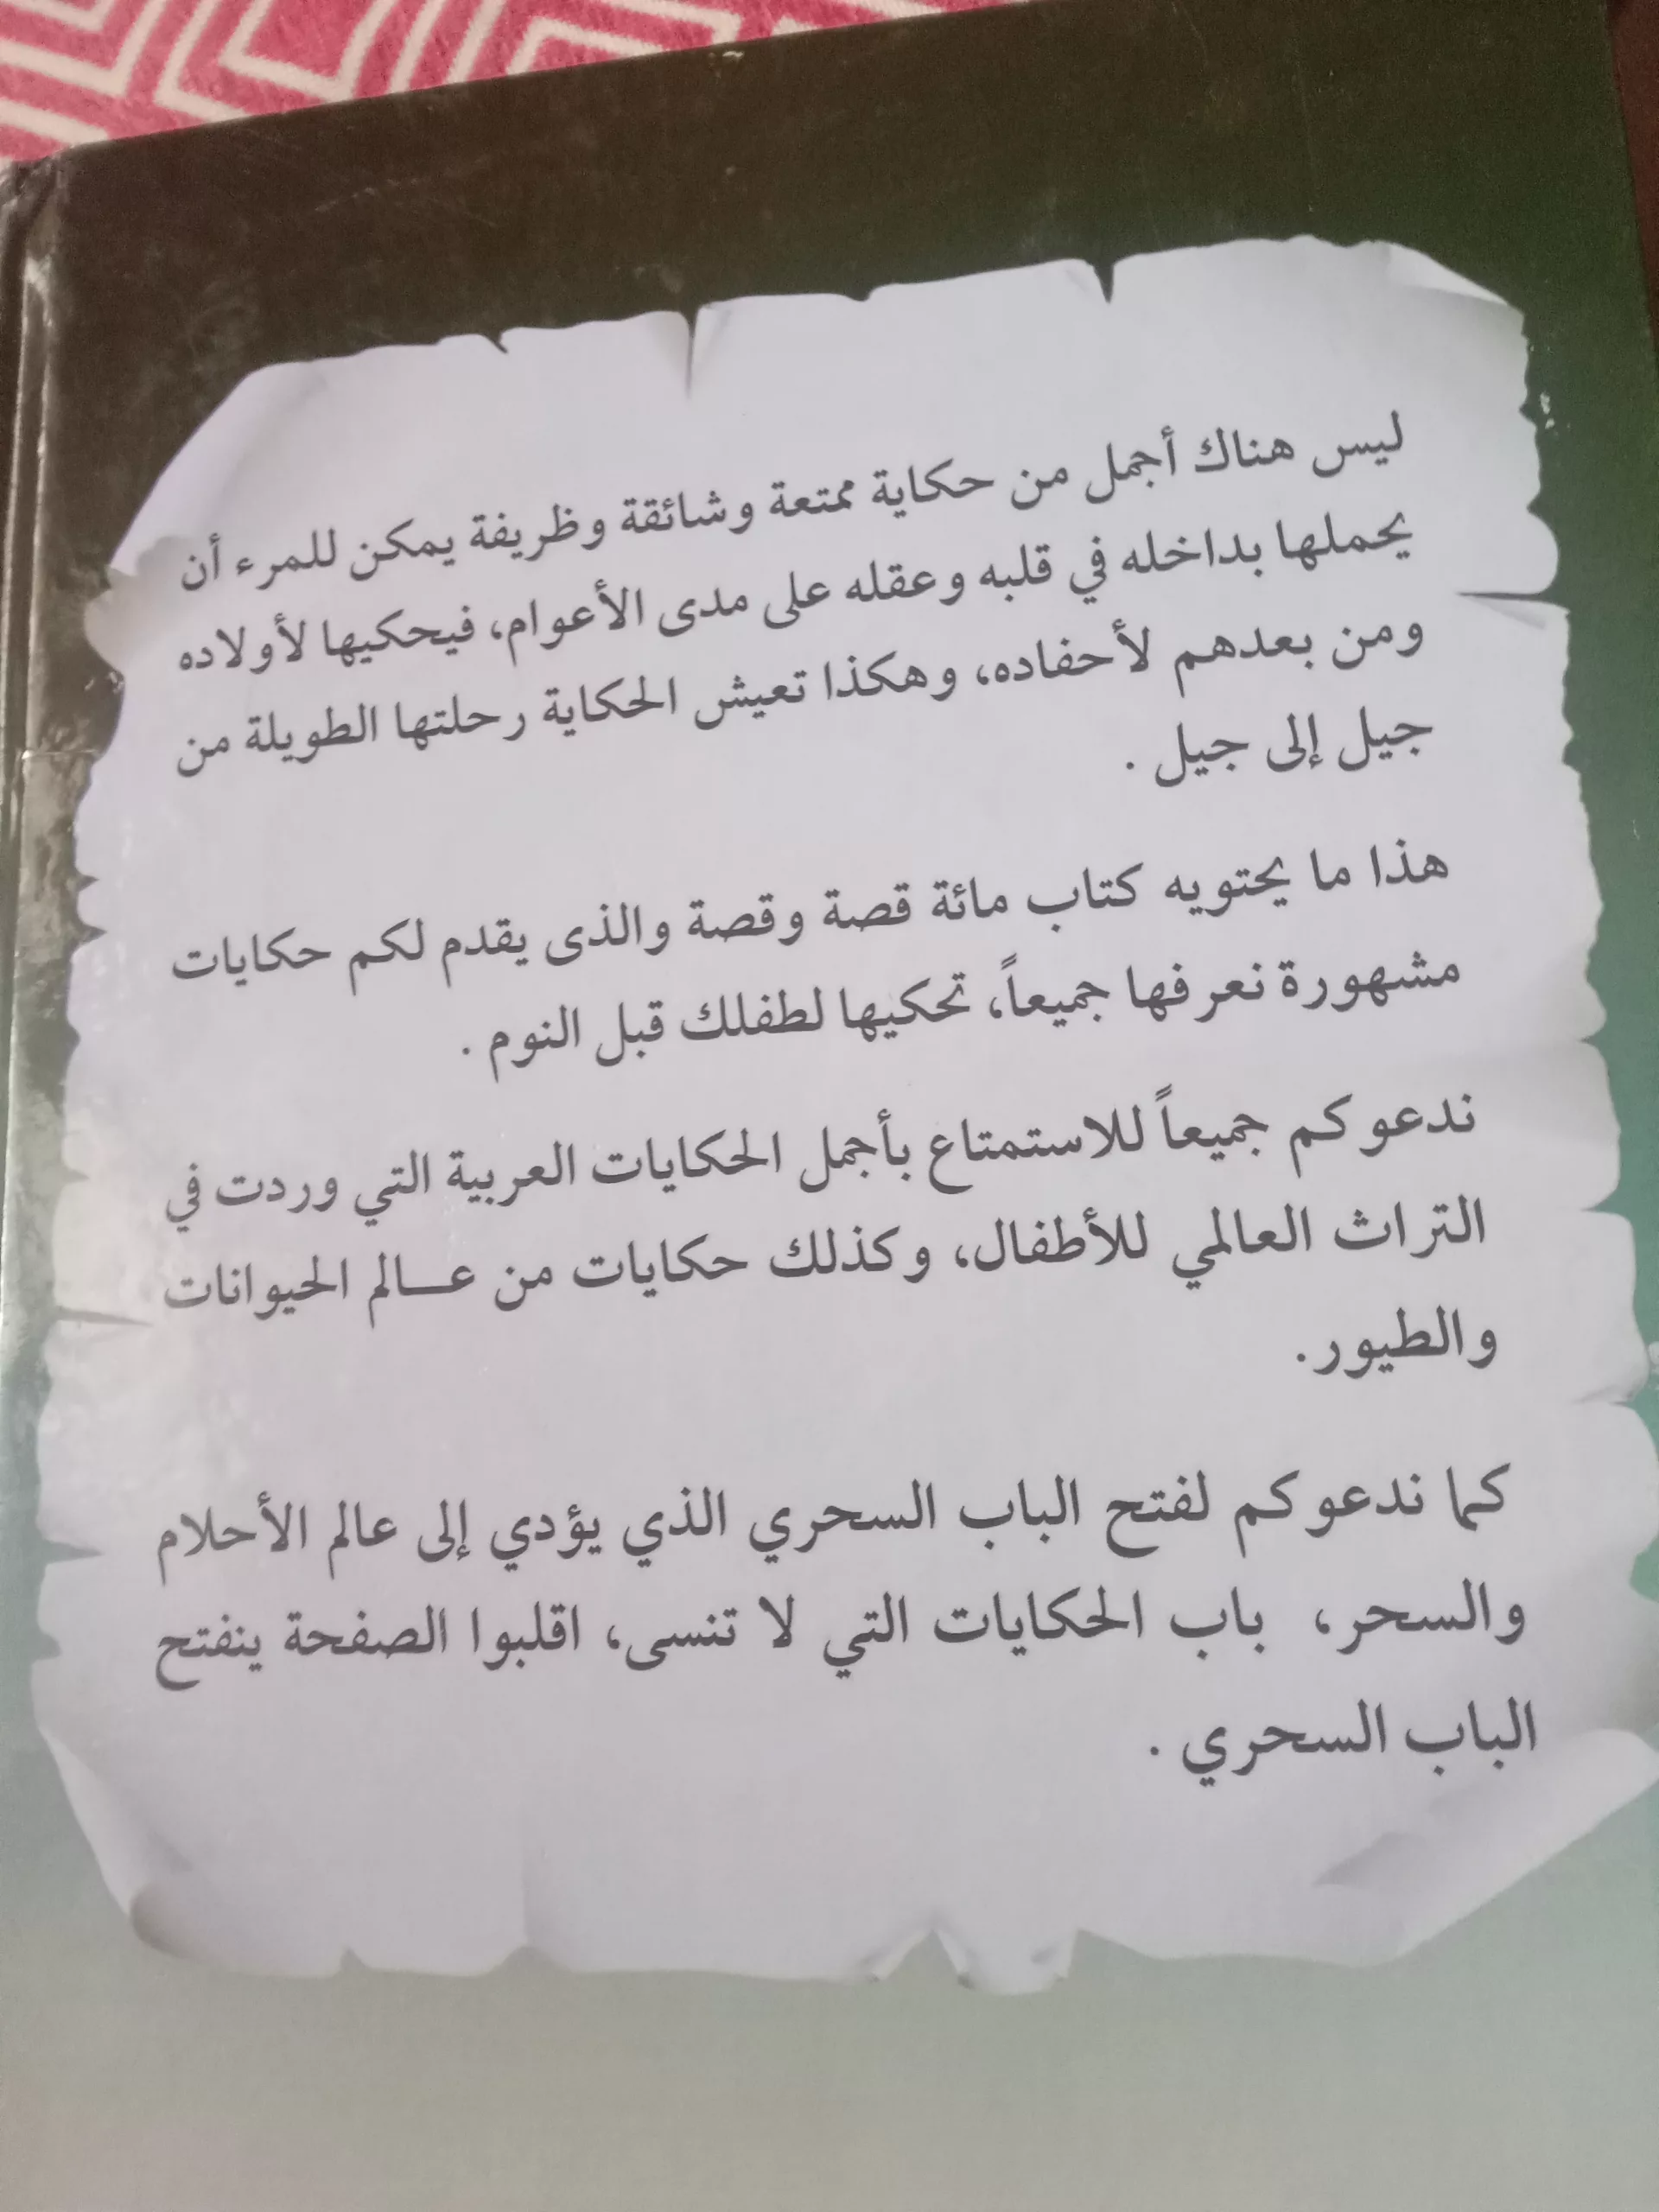 ليس هناك أجمل من حكاية ممتعة وشائقة وظريفة يمكن للمرء أن
يحملها بداخله في قلبه وعقله على مدى الأعوام، فيحكيها لأولاده
ومن بعدهم لأحفاده، وهكذا تعيش الحكاية رحلتها الطويلة من
جيل إلى جيل .
هذا ما يحتويه كتاب مائة قصة وقصة والذى يقدم لكم حكايات
مشهورة نعرفها جميعاً، تحكيها لطفلك قبل النوم .
ندعوكم جميعاً للاستمتاع بأجمل الحكايات العربية التي وردت في
التراث العالمي للأطفال، وكذلك حكايات من عـــالم الحيوانات
والطيور.
كما ندعوكم لفتح الباب السحري الذي يؤدي إلى عالم الأحلام
والسحر، باب الحكايات التي لا تنسى، اقلبوا الصفحة ينفتح
الباب السحري .